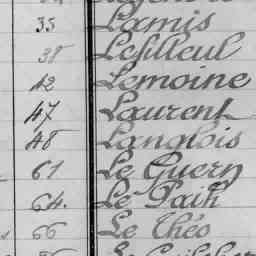 35 Lamis
38 Lefilleul
42 Lemoine
47 Laurent
48 Langlois
61 Le Guern
64. Le Paih
66 Le Théo